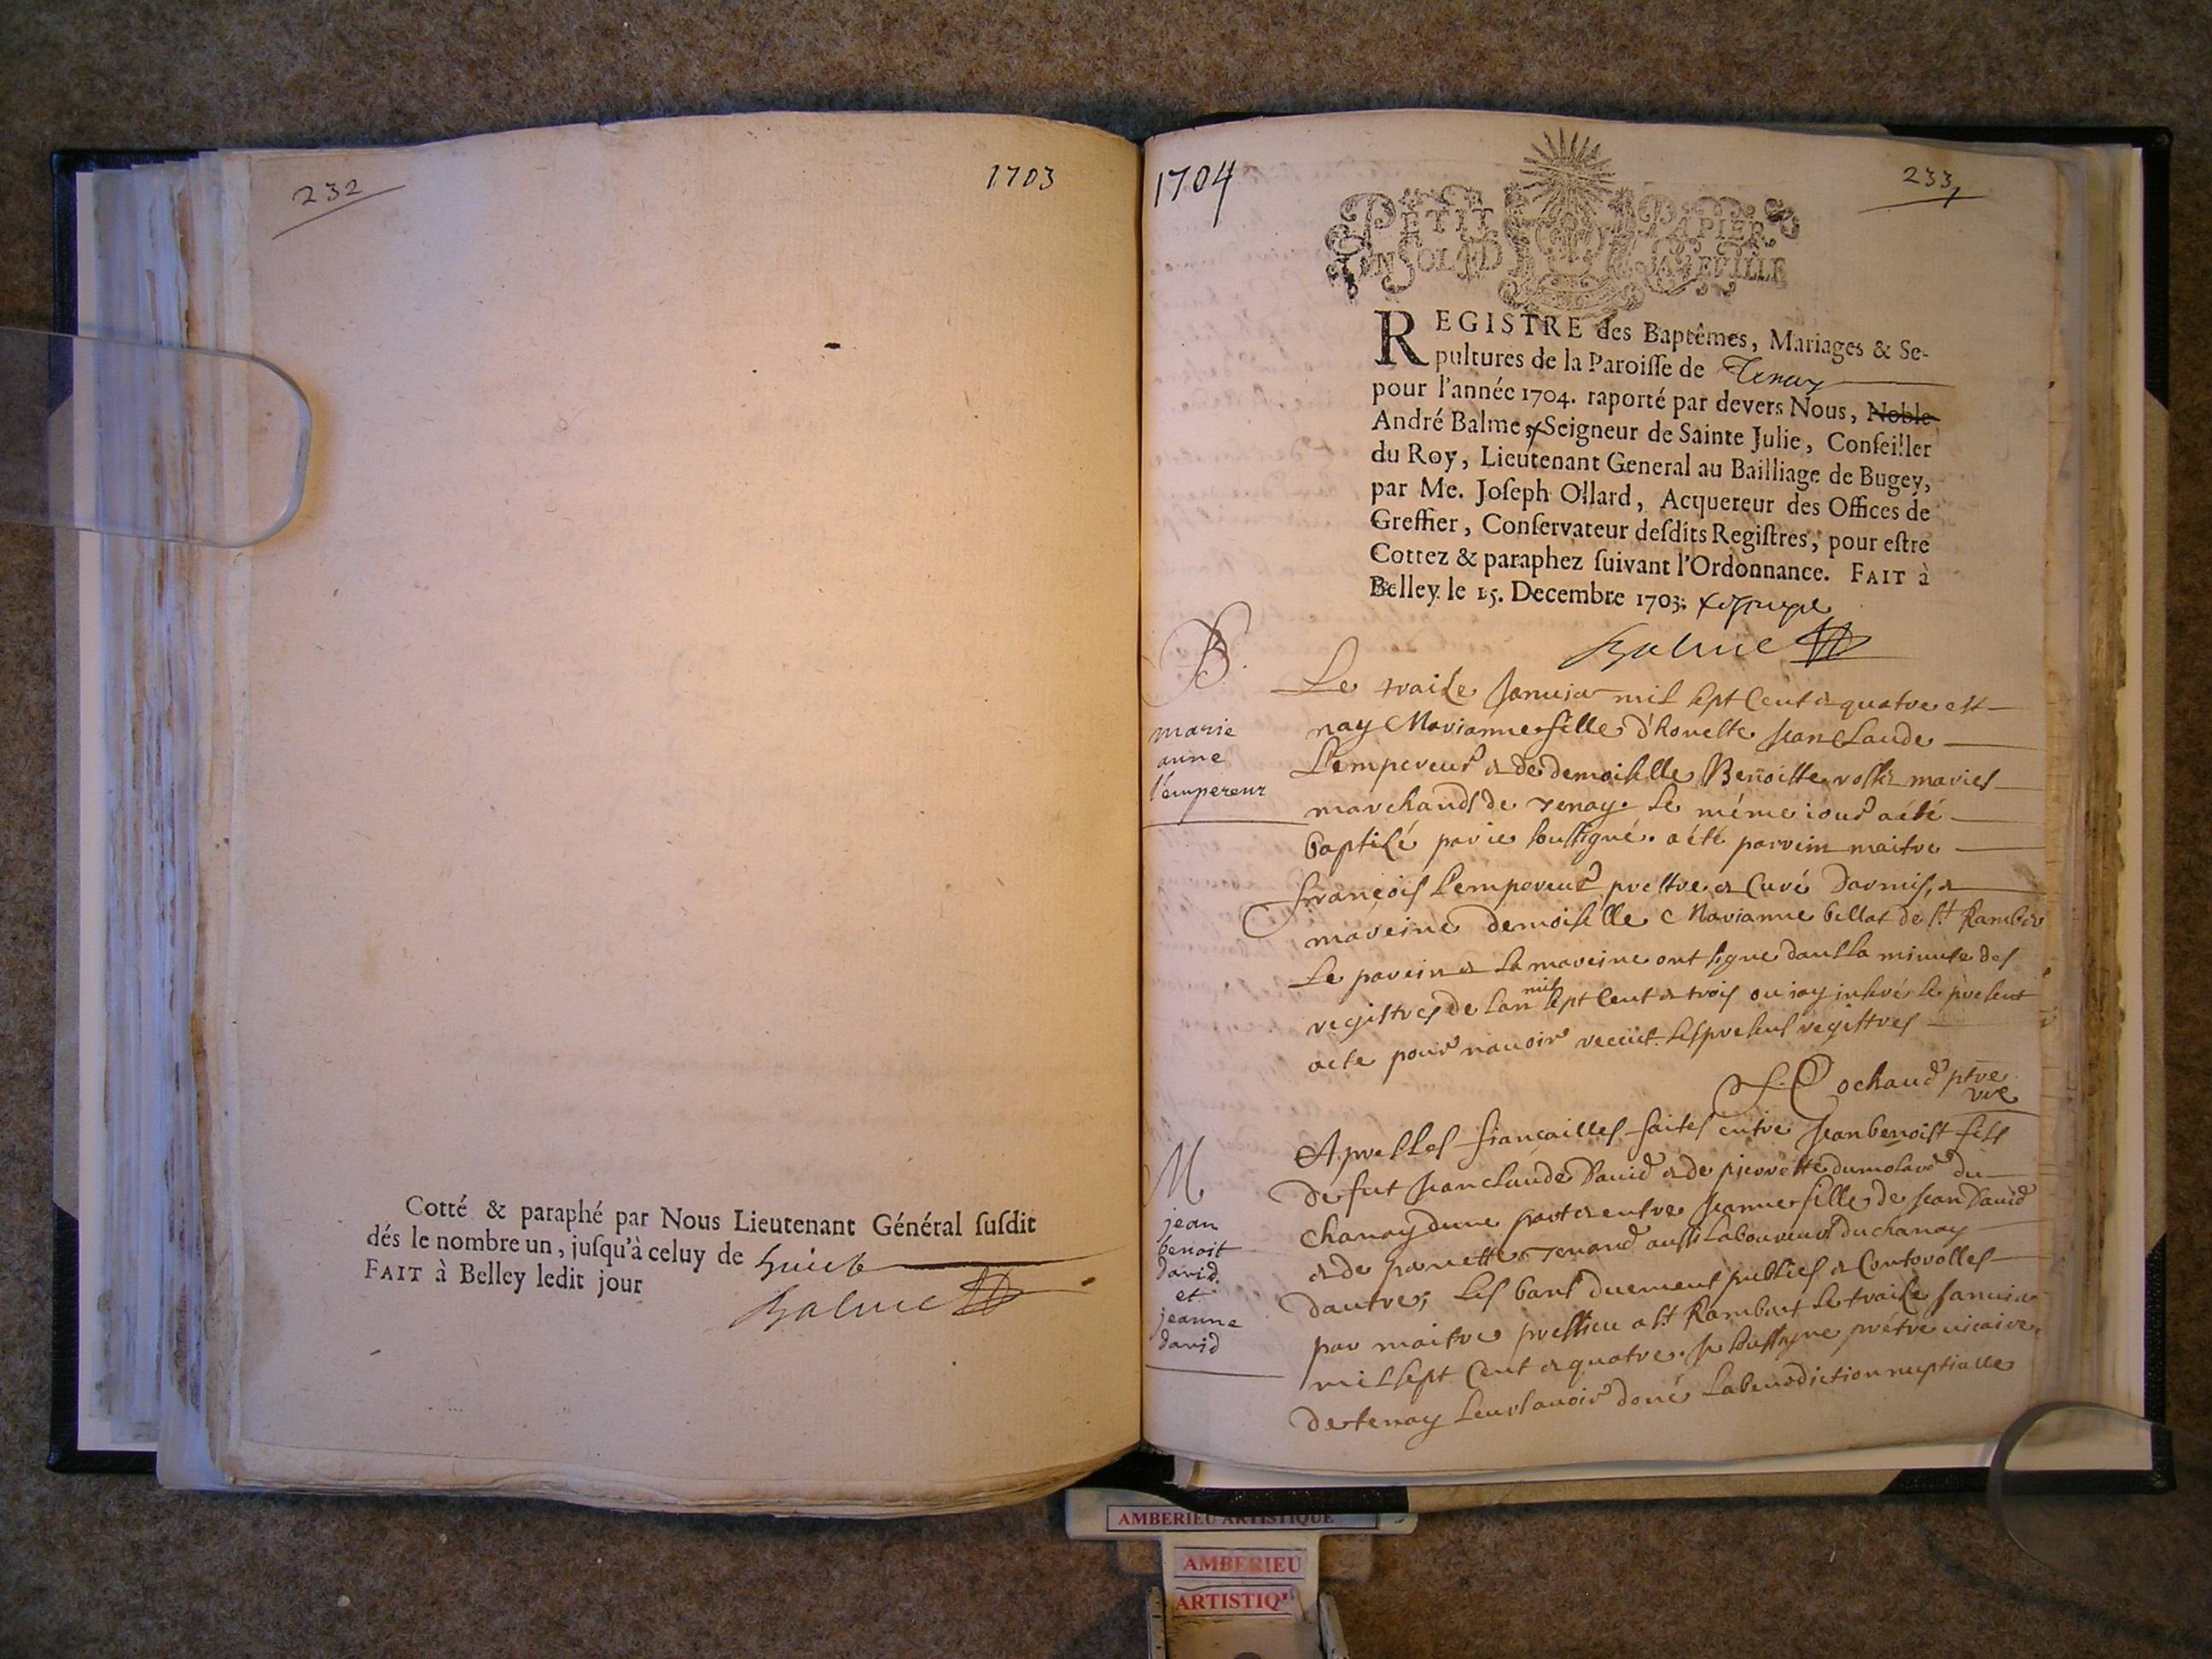 232
1703
Cotté & paraphé par Nous Lieutenant Général ſuſdit
dés le nombre un, juſqu'à celuy de huict
FAIT à Belley ledit jour
Balme
1704
233
PETIT PAPIER
REGISTRE des Baptêmes, Mariages & Se-
pultures de la Paroiſſe de Tenay
pour l'année 1704. raporté par devers Nous, Noble
André Balme, Seigneur de Sainte Julie, Conſeiller
du Roy, Lieutenant General au Bailliage de Bugey,
par Me. Joſeph Ollard, Acquereur des Offices de
Greffier, Conſervateur deſdits Regiſtres, pour eſtre
Cottez & paraphez ſuivant l'Ordonnance. FAIT à
Belley le 15. Decembre 1703.
Balme
B.
marie
anne
l'empereur
Le traize Januier mil sept Cent & quatre est
nay Marianne fille d'honeste Jean Claude
L'empereur & de demoiselle Benoitte mariés
marchands de tenay. Le méme iour a été
baptisé par ie soussigné. a été parein maitre
françois L'empereur prestre & Curé Darmis, &
mareine demoiselle Marianne bellat de St Rambert
Le parein & la mareine ont signe dans la minute des
registres de lan mil sept Cent & trois ou iay inseré le present
acte pour nauoir receut les presens registres
Cochaud ptre
vre
M
jean
benoit
david
et
jeanne
david
Apres Les fiançailles faites entre Jean benoist fils
de fut Jean Claude Dauid & de pierrette dumolard du
Chanay dune part & entre Jeanne fille de Jean Dauid
& de Tenand aussi Laboureurs du chanay
dautre; Les bans duement publiés & Controolles
par maitre pressieu a St Rambert Le traize Januier
mil sept Cent & quatre. Je soussigne prétre uicaire
de tenay Leurs auoir doné La benediction nuptialle
AMBERIEU ARTISTIQUE
AMBERIEU
ARTISTIQ